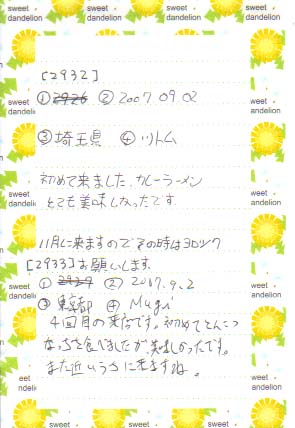 sweet dandelion sweet dandelion sweet dandelion sweet dandelion
[2932]
① 2926 ② 2007.09.02
③ 埼玉県 ④ ツトム
初めて来ました。カレーラーメン
とても美味しかったです
11月に来ますのでその時はヨロシク
[2933] お願いします。
① 2927 ② 2007.9.2
③ 東京都 ④ Mugi
4回目の来店です。初めてとんこつ
を食べましたが美味しかったです。
また近いうちに来ますね。
sweet dandelion sweet dandelion sweet dandelion